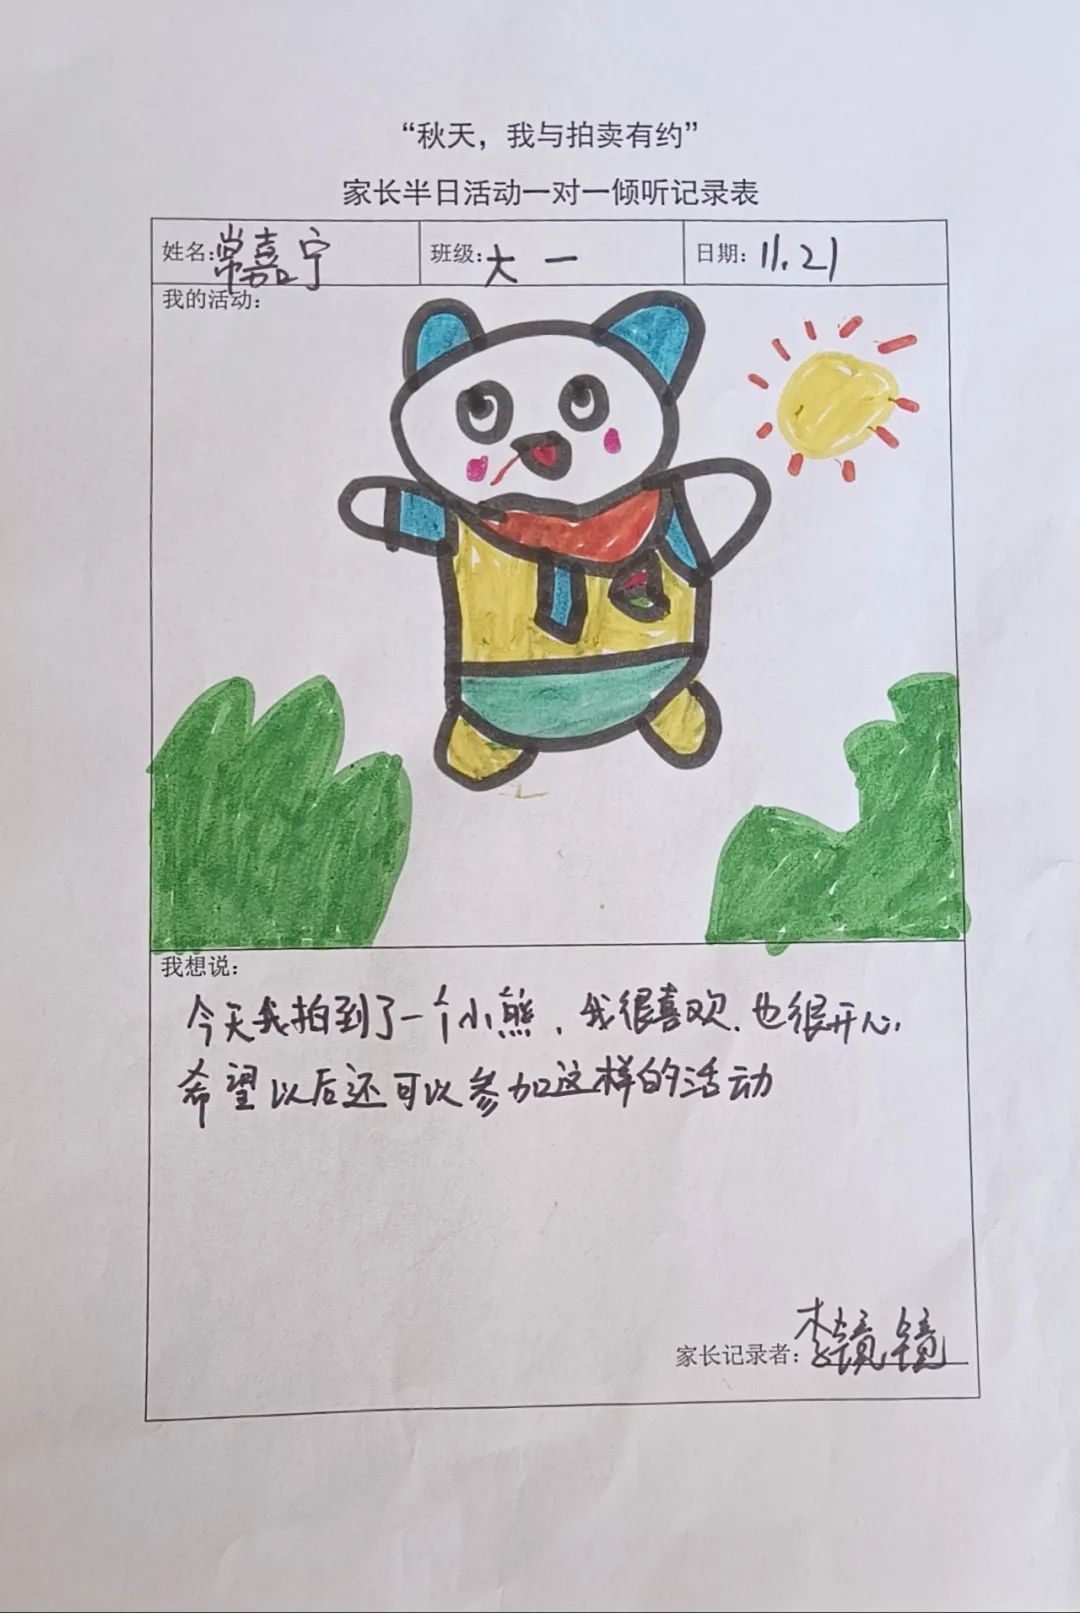 “秋天，我与拍卖有约”
家长半日活动一对一倾听记录表
姓名:常嘉宁 班级:大一 日期:11.21
我的活动:
我想说:
今天我拍到了一个小熊，我很喜欢，也很开心，
希望以后还可以参加这样的活动
家长记录者:李镜镜